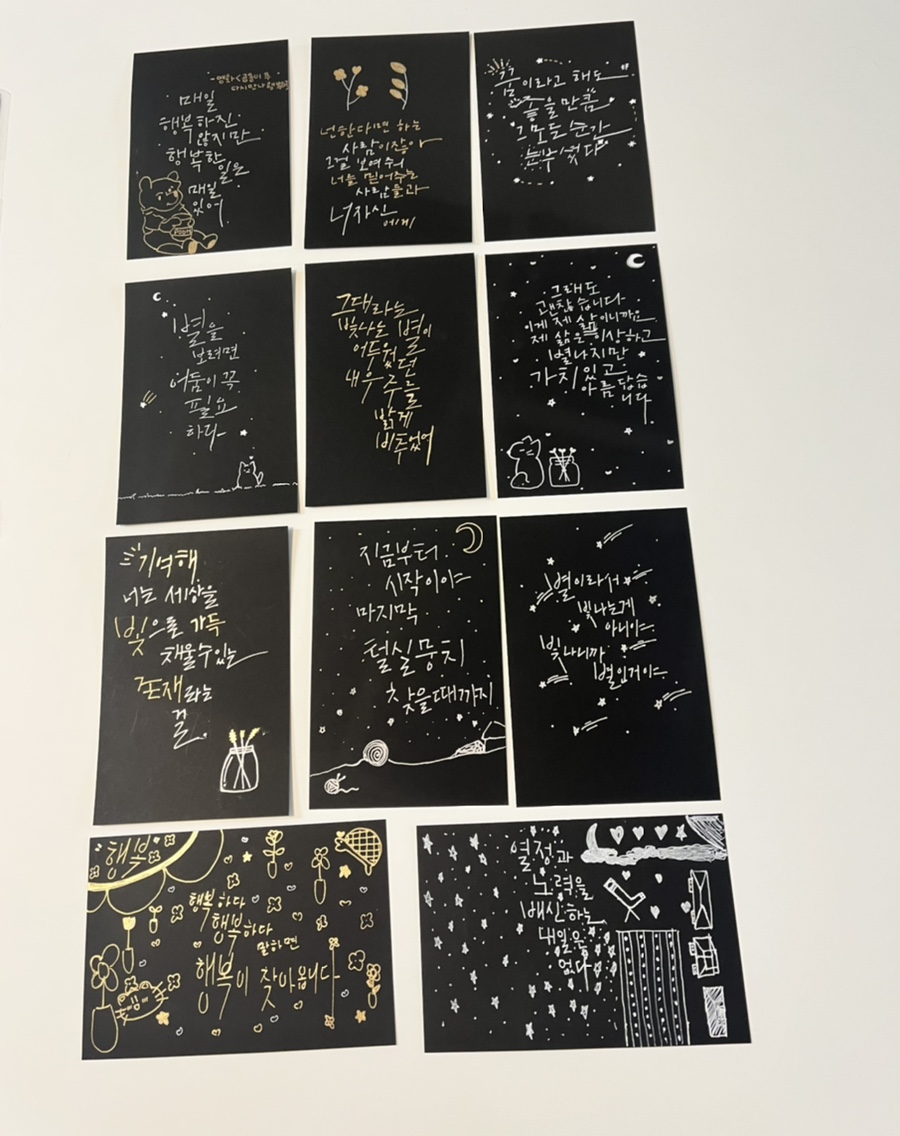 -영화<곰돌이 푸
다시만나 행복해
매일
행복하진
않지만
행복한
일은
매일
있어
POOH
너한다면 하는
사람이잖아
그걸 보여줘
너를 믿어주는
사람들과
너자신
에게
꿈이라고 해도
좋을 만큼
그 모든 순간
눈부셨다
별을
보려면
어둠이 꼭
필요
하다
그대라는
빛나는 별이
어두웠던
내우주를
밝게
비추었어
그래도
괜찮습니다
이게 제 삶이니까요
제 삶은 이상하고
별나지만
가치있고
아름답습
니다
기억해
너는 세상을
빛으로 가득
채울수있는
존재라는
걸.
지금부터
시작이야
마지막
털실뭉치
찾을때까지
별이라서
빛나는게
아니야
빛나니까
별인거야
행복
행복하다
행복하다
말하면
행복이 찾아옵니다
열정과
노력을
배신하는
내일은
없다